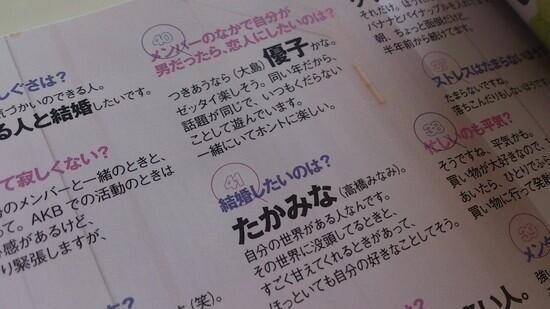 しぐさは？
気づかいのできる人。
る人と結婚したいです。
て寂しくない？
のメンバーと一緒のときと、
って。AKBでの活動のときは
感があるけど、
り緊張しますが、
(笑)。
40
メンバーのなかで自分が
男だったら、恋人にしたいのは？
つきあうなら(大島)優子かな。
ゼッタイ楽しそう。同い年だから、
話題が同じで、いつもくだらない
ことして遊んでいます。
一緒にいてホントに楽しい。
41
結婚したいのは？
たかみな(高橋みなみ)。
自分の世界がある人なんです。
その世界に没頭してるときと、
すごく甘えてくれるときがあって、
ほっといても自分の好きなことしてそう。
それだけ。はう
バナナとパイナップルを入れ
朝、ちょっと面倒だけど、
半年前から続けてます。
37
ストレスはたまらないほう
たまらないですね。
落ちこんだりもしないほうで
38
忙しいのも平気？
そうですね、平気かも。
買い物が大好きなので、
あいたら、ひとりでふら
買い物に行って発散
39
メン
強
い人。